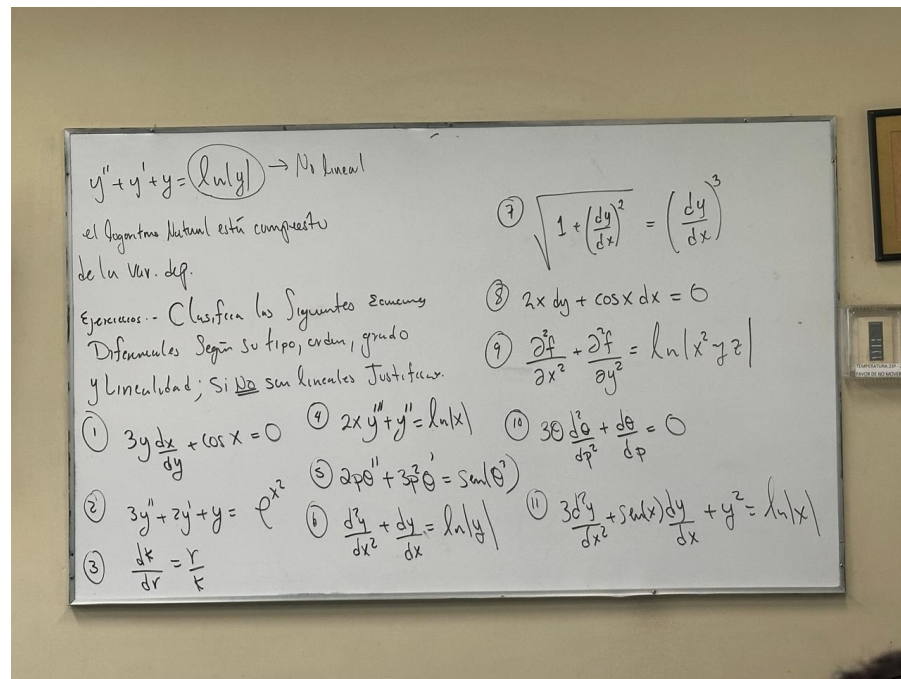 y'' + y' + y = ln|y| → No lineal
el logaritmo Natural está compuesto
de la var. dep.
Ejercicios.- Clasifica las Siguientes Ecuaciones
Diferenciales Según su tipo, orden, grado
y Linealidad; Si No son lineales Justificar.
① 3y dx/dy + cos x = 0
② 3y'' + 2y' + y = e^x²
③ dk/dr = r/k
④ 2xy''' + y'' = ln|x|
⑤ 2pθ'' + 3p²θ' = sen(θ')
⑥ d²y/dx² + dy/dx = ln|y|
⑦ √(1 + (dy/dx)²) = (dy/dx)³
⑧ 2x dy + cos x dx = 0
⑨ ∂²f/∂x² + ∂²f/∂y² = ln|x² y z|
⑩ 3θ d²θ/dp² + dθ/dp = 0
⑪ 3d²y/dx² + sen(x) dy/dx + y² = ln|x|
TEMPERATURA ZEP -
FAVOR DE NO MOVER